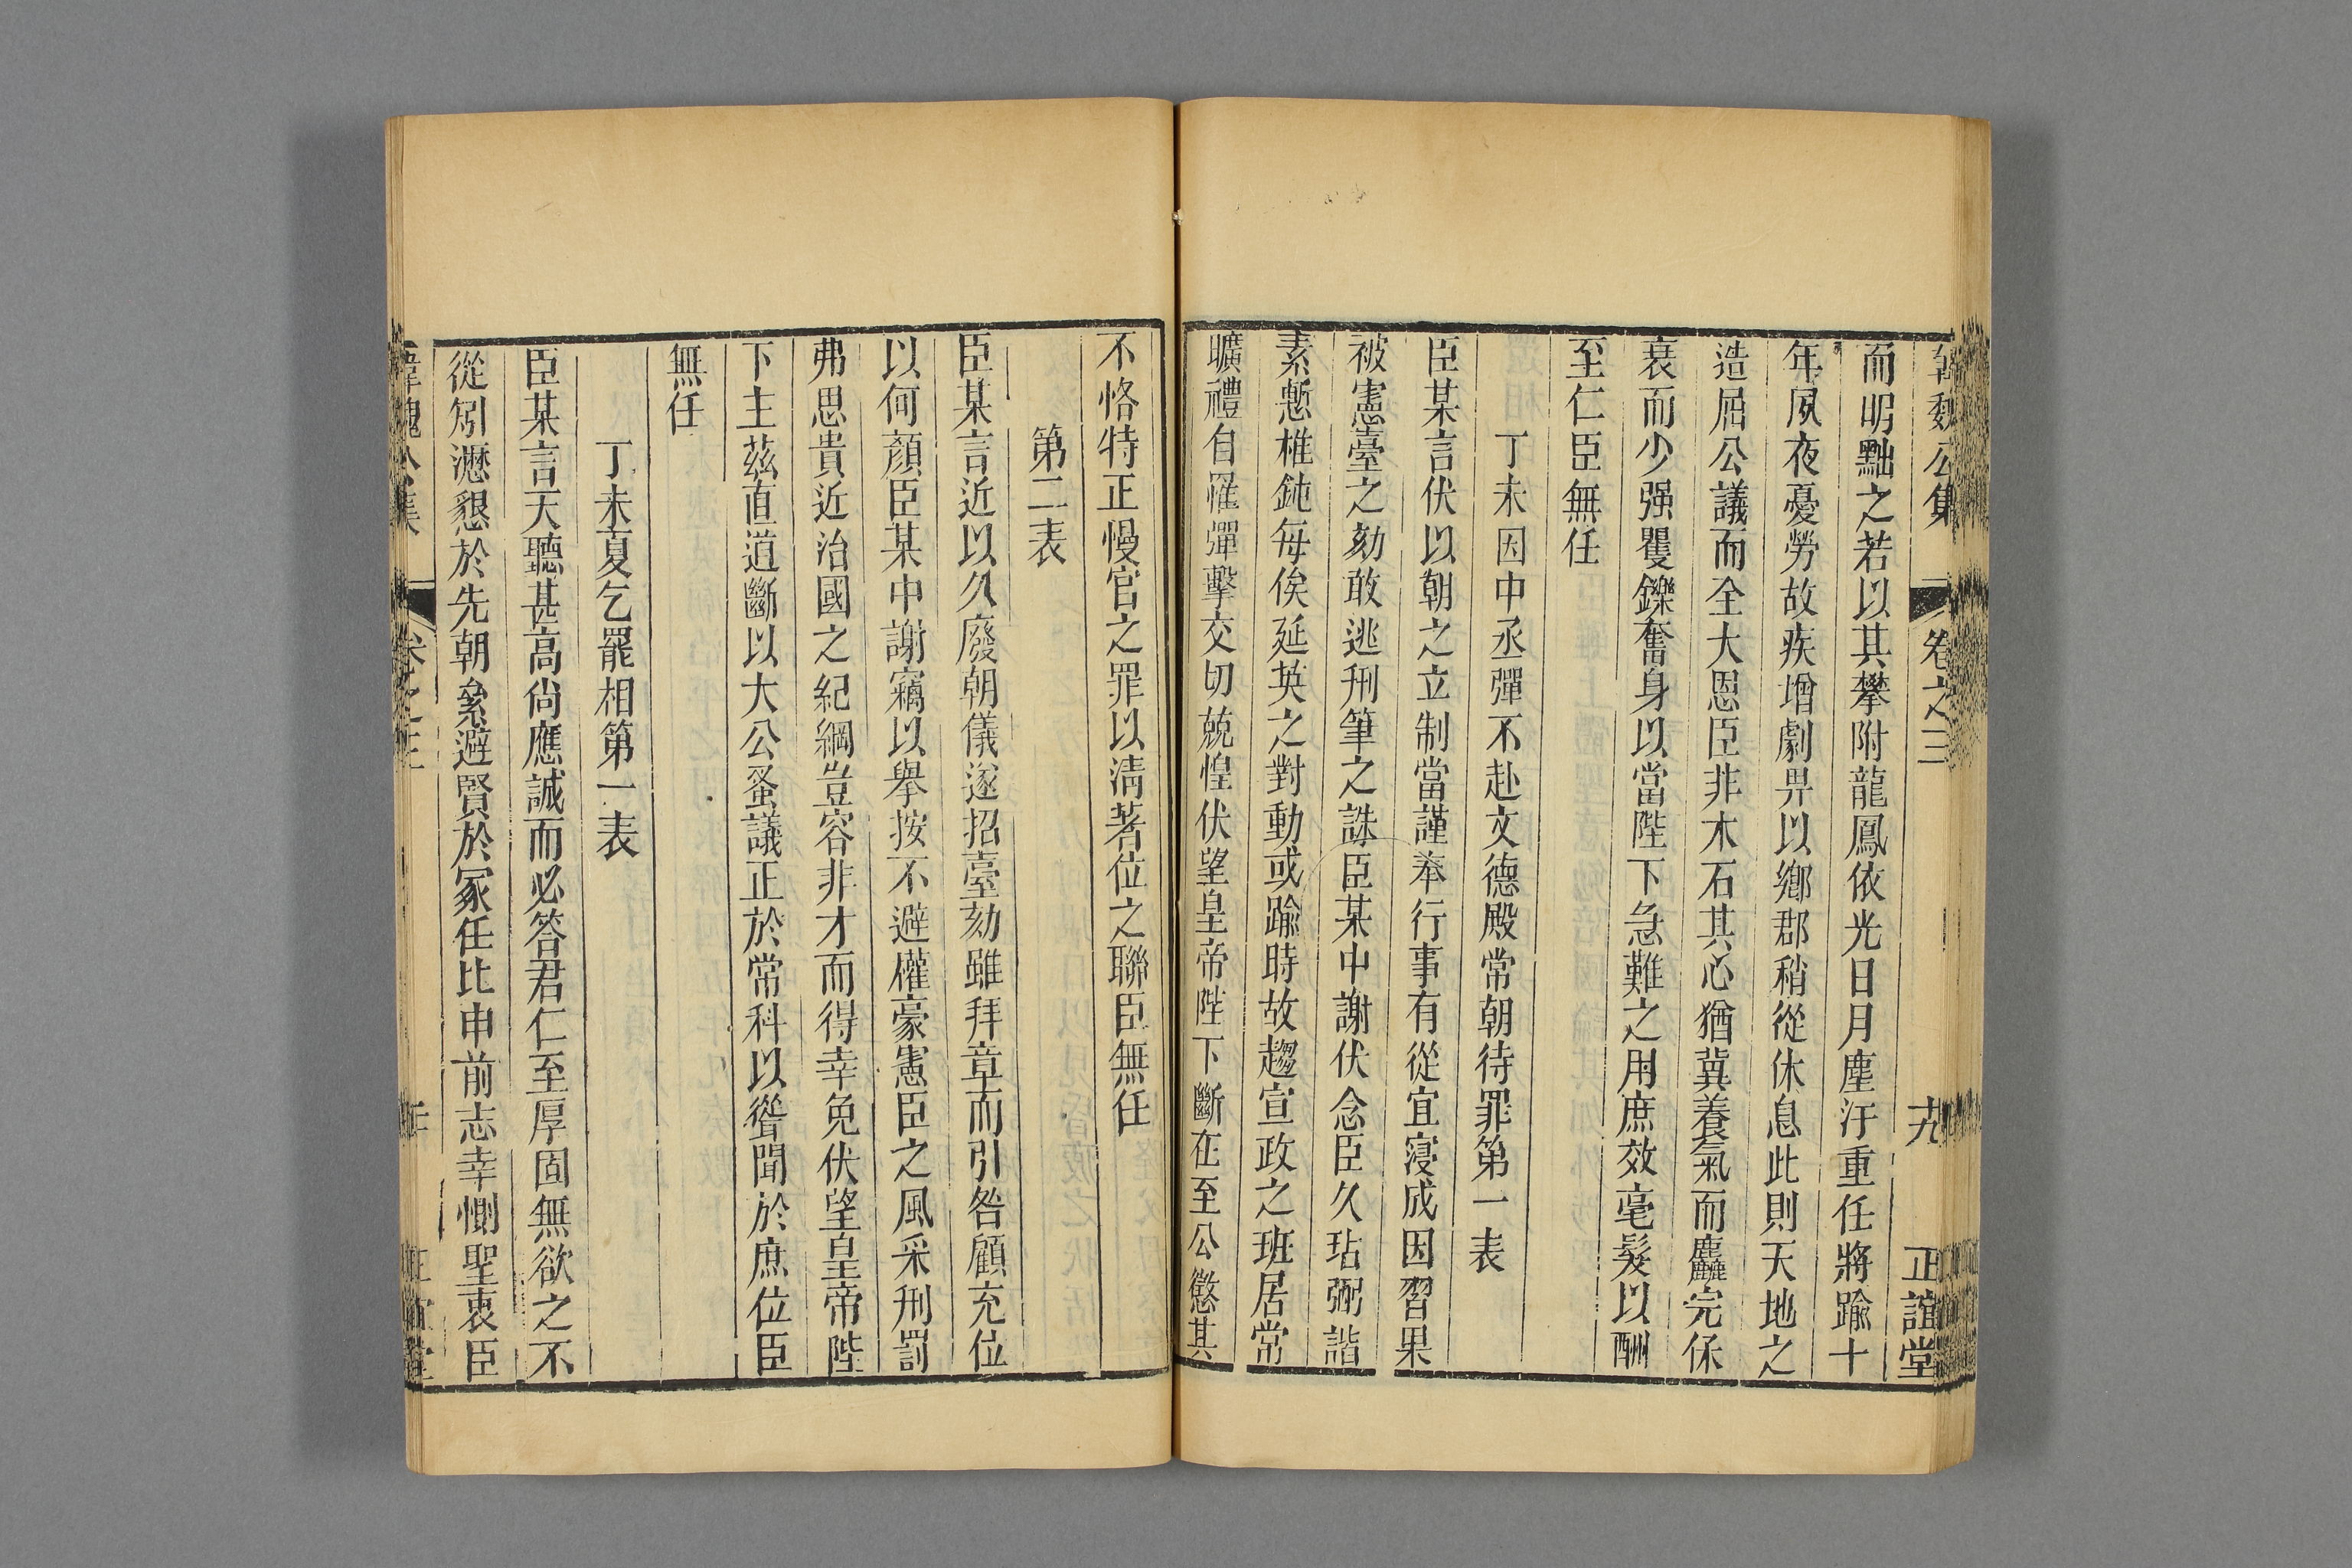 韓魏公集 卷之三 十九 正誼堂
而明黜之若以其攀附龍鳳依光日月塵汙重任將踰十
年夙夜憂勞故疾增劇畀以鄉郡稍從休息此則天地之
造屈公議而全大恩臣非木石其心猶冀養氣而麤完保
衰而少强矍鑠奮身以當陛下急難之用庶效毫髮以酬
至仁臣無任
丁未因中丞彈不赴文德殿常朝待罪第一表
臣某言伏以朝之立制當謹奉行事有從宜寖成因習果
被憲臺之劾敢逃刑筆之誅臣某中謝伏念臣久玷弼諧
素慙椎鈍每俟延英之對動或踰時故趨宣政之班居常
曠禮自罹彈擊交切兢惶伏望皇帝陛下斷在至公懲其
不恪特正慢官之罪以淸著位之聯臣無任
第二表
臣某言近以久廢朝儀遂招臺劾雖拜章而引咎顧充位
以何顏臣某中謝竊以舉按不避權豪憲臣之風采刑罰
弗思貴近治國之紀綱豈容非才而得幸免伏望皇帝陛
下主茲直道斷以大公蚤議正於常科以聳聞於庶位臣
無任
丁未夏乞罷相第一表
臣某言天聽甚高尙應誠而必答君仁至厚固無欲之不
從矧瀝懇於先朝絫避賢於冢任比申前志幸惻聖衷臣
韓魏公集 卷之三 二十 正誼堂